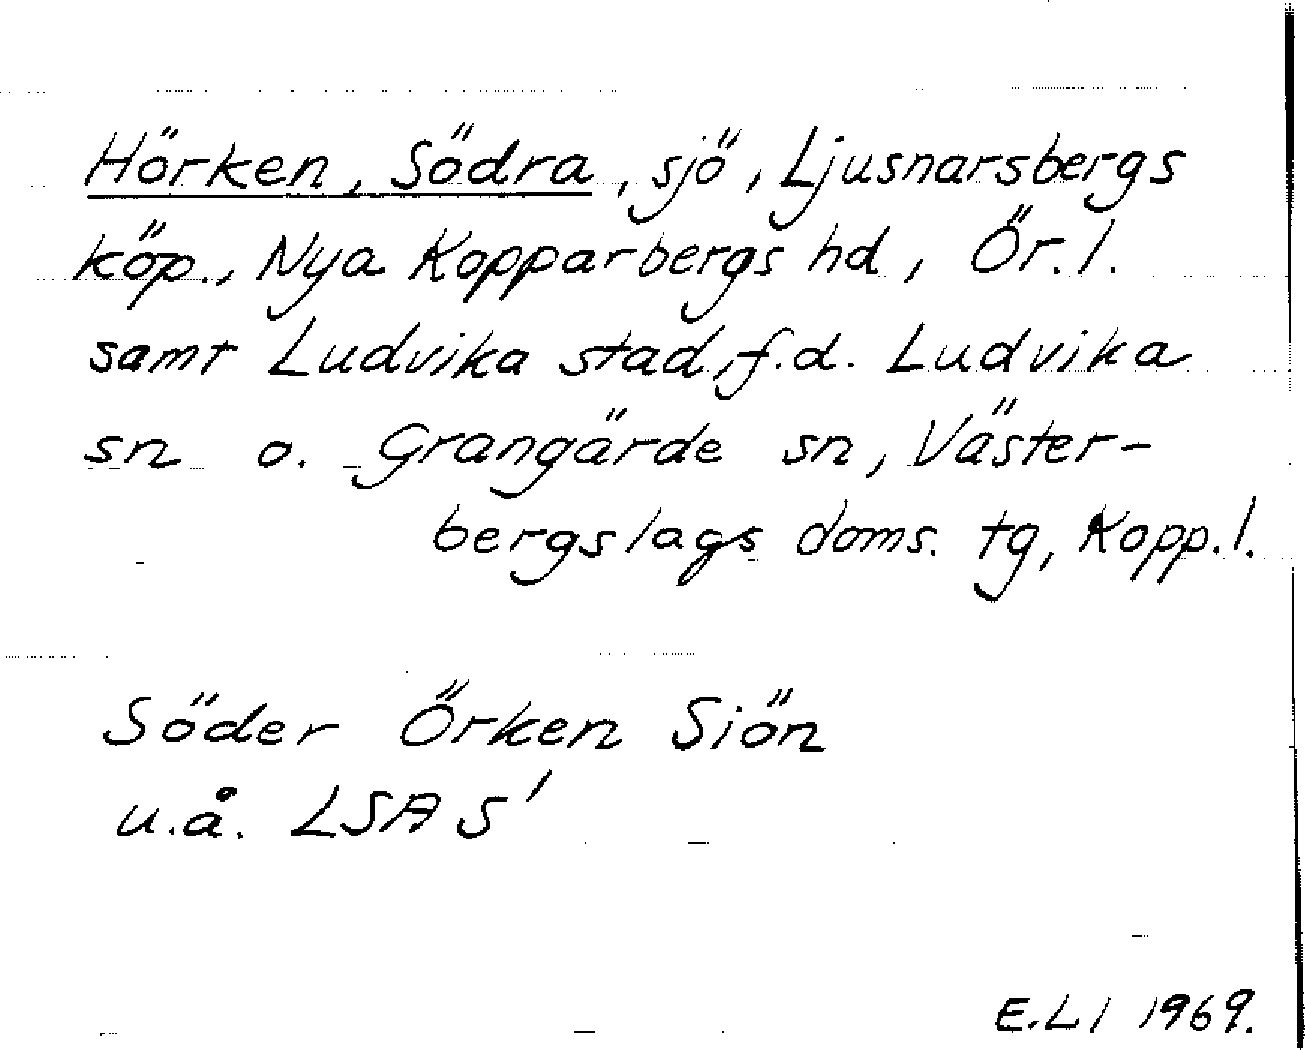 Hörken, Södra, sjö, Ljusnarsbergs
köp., Nya Kopparbergs hd, Ör.l.
samt Ludvika stad, f.d. Ludvika
sn o. Grangärde sn, Väster-
bergslags doms. tg, Kopp.l.
Söder Örken Siön
u.å. LSA S'
E.Ll 1969.